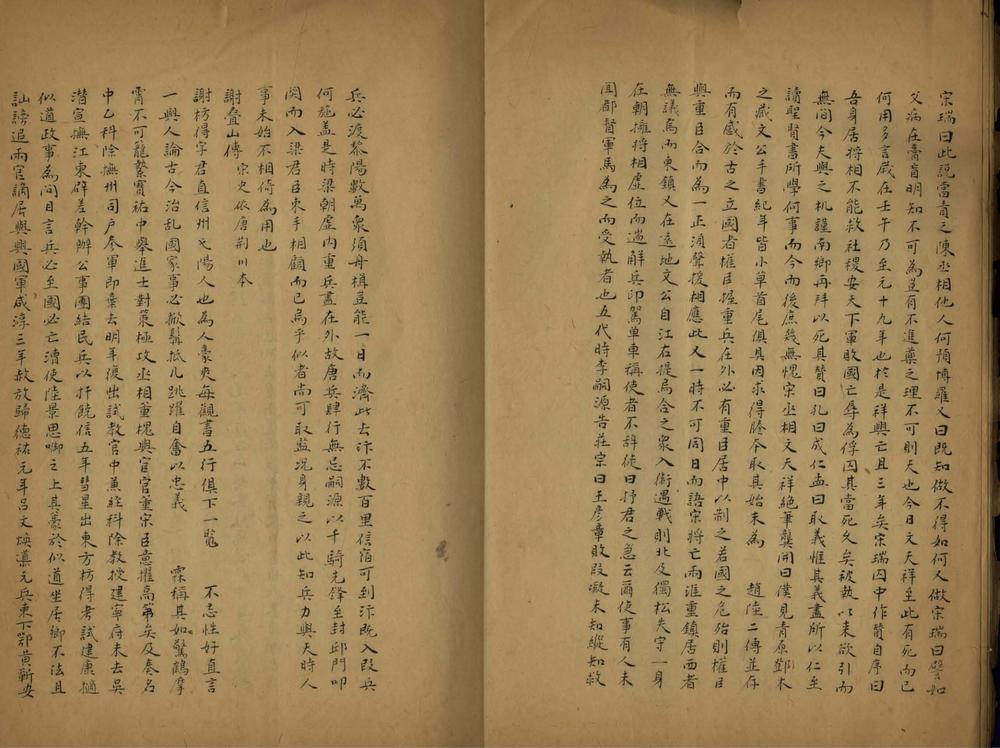 宋瑞曰此説當責之陳丞相他人何預博羅又曰既知做不得如何人做宋瑞曰譬如
父病在膏肓明知不可為豈有不進藥之理不可則天也今日文天祥至此有死而已
何用多言歲在壬午乃至元十九年也於是祥興亡且三年矣宋瑞囚中作贊自序曰
吾身居將相不能救社稷安天下軍敗國亡辱為俘囚其當死久矣被執以來欲引而
無間今夫與之机謹南鄉再拜以死其贊曰孔曰成仁孟曰取義惟其義盡所以仁至
讀聖賢書所學何事而今而後庶幾無愧宋丞相文天祥絶筆龔開曰僕見青原鄧木
之藏文公手書紀年皆小草首尾俱具因求得謄本取其始末為 趙陸二傳並存
而有感於古之立國者權臣握重兵在外必有重臣居中以制之若國之危殆則權臣
與重臣合而為一正須聲援相應此又一時不可同日而語宋將亡兩淮重鎮居西者
無議為而東鎮又在遠地文公自江右提烏合之衆入衛遇戰則北及獨松失守一身
在朝擁將相虛位而遄解兵印駕單車稱使者不辞徒曰抒君之急云爾使事有人未
聞都督軍馬為之而受執者也五代時李嗣源告莊宗曰王彥章敗段凝未知縱知救
兵必渡黎陽數萬衆須舟楫豈能一日而濟此去汴不數百里信宿可到汴既入段兵
何施盖是時梁朝虛内重兵盡在外故唐兵肆行無忌嗣源以千騎先鋒至封邱門叩
関而入梁君臣束手相顧而已烏乎似者尚可取監况身親之以此知兵力與天時人
事未始不相倚為用也
謝叠山傳 宋史依唐荆川本
謝枋得字君直信州弋陽人也為人豪爽每觀書五行俱下一覧 不忘性好直言
一與人論古今治乱國家事必掀髯抵几跳躍自奮以忠義 霖稱其如驚鶴摩
霄不可籠縶寶祐中舉進士對策極攻丞相董槐與宦官董宋臣意擢高第矣及奏名
中乙科除撫州司户叅軍即棄去明年復出試教官中兼經科除教授建寧府未去吳
潛宣撫江東辟差幹辦公事團結民兵以扞饒信五年彗星出東方枋得考試建康擿
似道政事為问目言兵必至國必亡漕使陸景思啣之上其藁於似道坐居鄉不法且
訕謗追兩官謫居興國軍咸淳三年赦放歸德祐元年吕文焕導元兵東下鄂黄蘄安